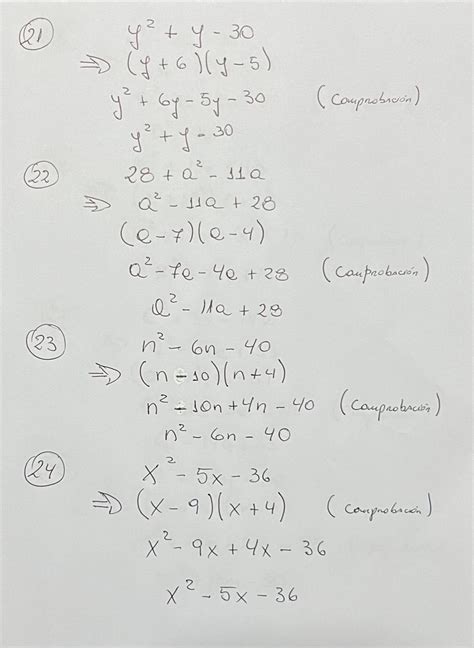 21 y² + y - 30
⇒ (y + 6)(y - 5)
y² + 6y - 5y - 30 (Comprobación)
y² + y - 30
22 28 + a² - 11a
⇒ a² - 11a + 28
(a - 7)(a - 4)
a² - 7a - 4a + 28 (Comprobación)
a² - 11a + 28
23 n² - 6n - 40
⇒ (n - 10)(n + 4)
n² - 10n + 4n - 40 (Comprobación)
n² - 6n - 40
24 x² - 5x - 36
⇒ (x - 9)(x + 4) (Comprobación)
x² - 9x + 4x - 36
x² - 5x - 36